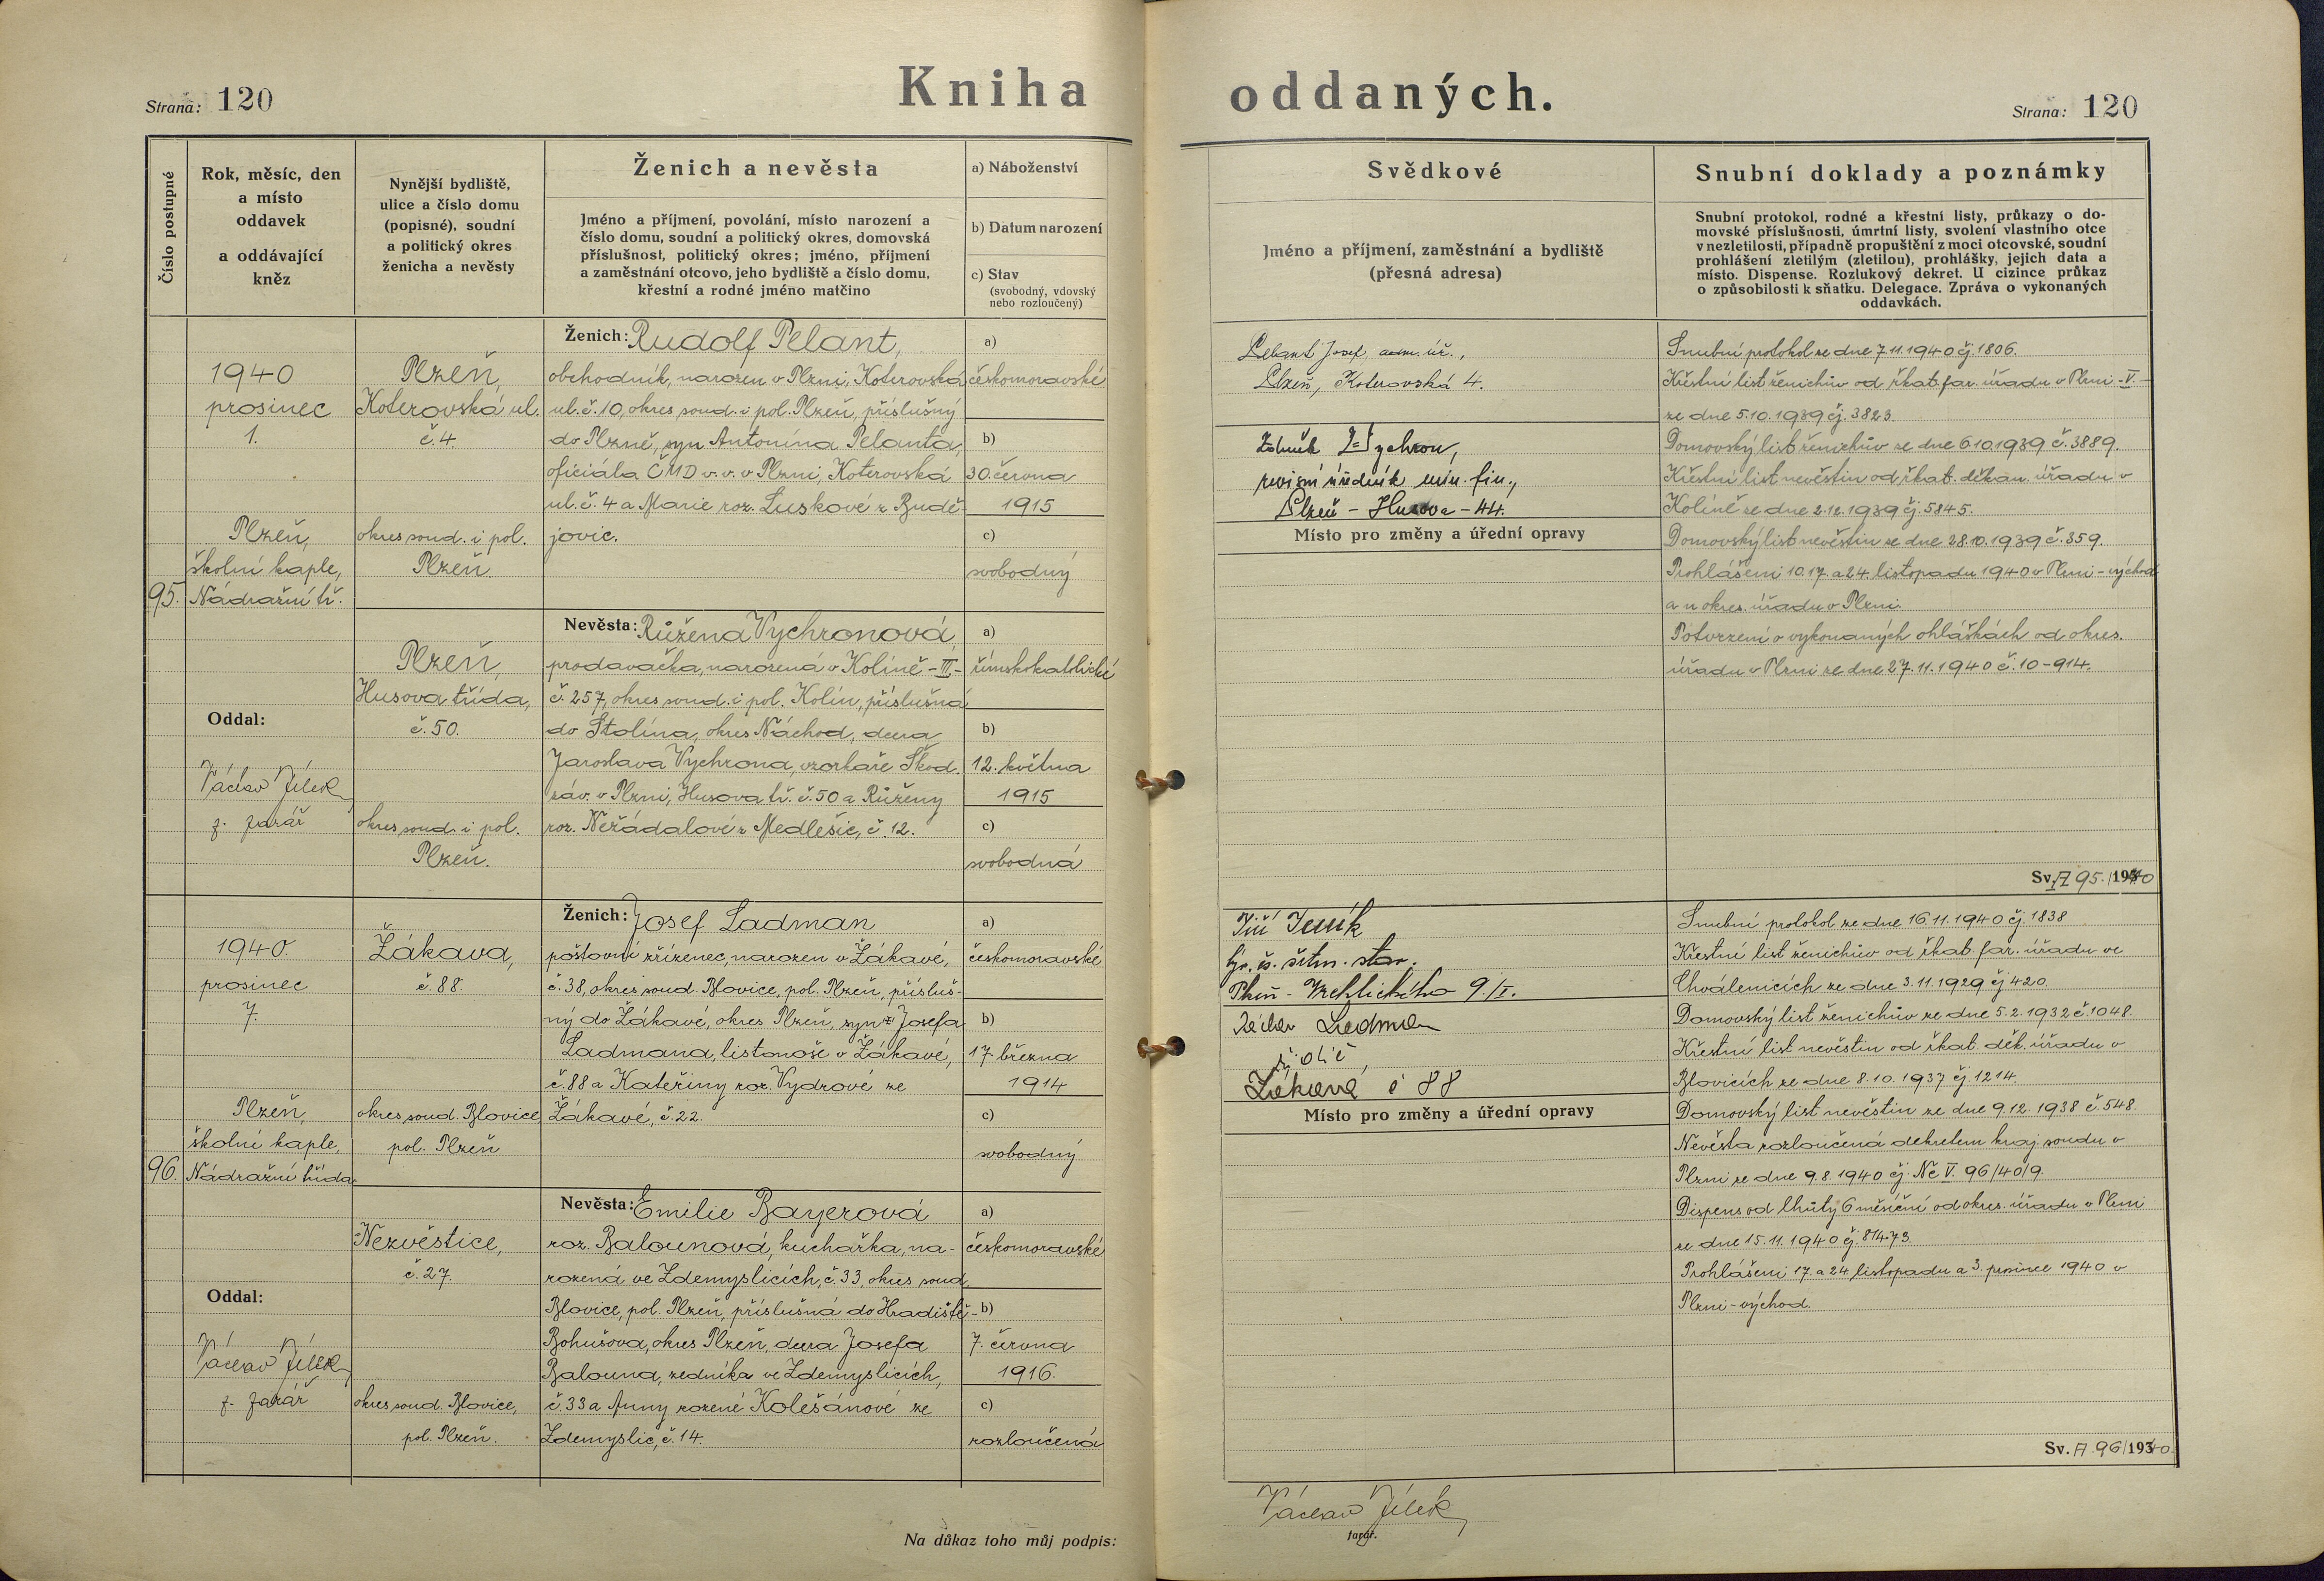 Strana: 120
Kniha oddaných.
Strana: 120
Číslo postupné
Rok, měsíc, den
a místo
oddavek
a oddávající
kněz
Nynější bydliště,
ulice a číslo domu
(popisné), soudní
a politický okres
ženicha a nevěsty
Ženich a nevěsta
Jméno a příjmení, povolání, místo narození a
číslo domu, soudní a politický okres, domovská
příslušnost, politický okres; jméno, příjmení
a zaměstnání otcovo, jeho bydliště a číslo domu,
křestní a rodné jméno matčino
a) Náboženství
b) Datum narození
c) Stav
(svobodný, vdovský
nebo rozloučený)
Svědkové
Jméno a příjmení, zaměstnání a bydliště
(přesná adresa)
Snubní doklady a poznámky
Snubní protokol, rodné a křestní listy, průkazy o do-
movské příslušnosti, úmrtní listy, svolení vlastního otce
v nezletilosti, případně propuštění z moci otcovské, soudní
prohlášení zletilým (zletilou), prohlášky, jejich data a
místo. Dispense. Rozlukový dekret. U cizince průkaz
o způsobilosti k sňatku. Delegace. Zpráva o vykonaných
oddavkách.
95.
1940
prosinec
1.
Plzeň,
školní kaple,
Nádražní tř.
Oddal:
Václav Jílek
f. farář
Plzeň,
Koterovská ul.
č. 4.
okres soud. i pol.
Plzeň.
Plzeň,
Husova třída,
č. 50.
okres soud. i pol.
Plzeň.
Ženich: Rudolf Pelant,
obchodník, narozen v Plzni, Koterovská
ul. č. 10, okres soud. i pol. Plzeň, příslušný
do Plzně, syn Antonína Pelanta,
oficiála ČMD v. v. v Plzni, Koterovská
ul. č. 4 a Marie roz. Luskové z Budě-
jovic.
a)
českomoravské
b)
30. června
1915
c)
svobodný
Nevěsta: Růžena Vychronová
prodavačka, narozená v Kolíně - III -
č. 257, okres soud. i pol. Kolín, příslušná
do Stolína, okres Náchod, dcera
Jaroslava Vychrona, vzorkaře Škod.
záv. v Plzni, Husova tř. č. 50 a Růženy
roz. Neřádalové z Medlešic, č. 12.
a)
římskokatolické
b)
12. května
1915
c)
svobodná
Pelant Josef, adm. úř.,
Plzeň, Koterovská 4.
Zdeněk Vychron,
revisní úředník min. fin.,
Plzeň - Husova - 44.
Místo pro změny a úřední opravy
Snubní protokol ze dne 7.11.1940 čj. 1806.
Křestní list ženichův od řkat. far. úřadu v Plzni - V. -
ze dne 5.10.1939 čj. 3823.
Domovský list ženichův ze dne 6.10.1939 č. 3889.
Křestní list nevěstin od řkat. děkan. úřadu v
Kolíně ze dne 2.12.1939 čj. 5845.
Domovský list nevěstin ze dne 28.10.1939 č. 359.
Prohlášeni 10. 17. a 24. listopadu 1940 v Plzni - východ
a u okres. úřadu v Plzni.
Potvrzení o vykonaných ohláškách od okres.
úřadu v Plzni ze dne 27.11.1940 č. 10-914.
Sv. A 95./1940
96.
1940.
prosinec
7.
Plzeň,
školní kaple,
Nádražní třída.
Oddal:
Václav Jílek
f. farář
Žákava,
č. 88.
okres soud. Blovice,
pol. Plzeň
Nezvěstice,
č. 27.
okres soud. Blovice,
pol. Plzeň.
Ženich: Josef Ladman
poštovní zřízenec, narozen v Žákavé,
č. 38, okres soud. Blovice, pol. Plzeň, přísluš-
ný do Žákavé, okres Plzeň, syn Josefa
Ladmana, listonoše v Žákavé,
č. 88 a Kateřiny roz. Vydrové ze
Žákavé, č. 22.
a)
českomoravské
b)
17. března
1914
c)
svobodný
Nevěsta: Emilie Bayerová
roz. Balounová, kuchařka, na-
rozená ve Zdemyslicích, č. 33, okres soud.
Blovice, pol. Plzeň, příslušná do Hradiště-
Bohušova, okres Plzeň, dcera Josefa
Balouna, zedníka ve Zdemyslicích,
č. 33 a Anny rozené Kolešánové ze
Zdemyslic, č. 14.
a)
českomoravské
b)
7. června
1916.
c)
rozloučená
Jiří
Plzeň - Vrchlického 9./I.
Václav Ladman
Žákavá č 88
Místo pro změny a úřední opravy
Snubní protokol ze dne 16.11.1940 čj. 1838
Křestní list ženichův od řkat. far. úřadu ve
Chválenicích ze dne 3.11.1929 čj 420.
Domovský list ženichův ze dne 5.2.1932 č. 1048.
Křestní list nevěstin od řkat. děk. úřadu v
Blovicích ze dne 8.10.1937 čj. 1214.
Domovský list nevěstin ze dne 9.12.1938 č. 548.
Nevěsta rozloučená dekretem kraj. soudu v
Plzni ze dne 9.8.1940 čj. Nc V. 96/40/9.
Dispens od lhůty 6 měsíční od okres. úřadu v Plzni
ze dne 15.11.1940 č. 81473
Prohlášeni 17. a 24. listopadu a 3. prosince 1940 v
Plzni - východ.
Sv. A. 96/1940.
Na důkaz toho můj podpis:
Václav Jílek
farář.